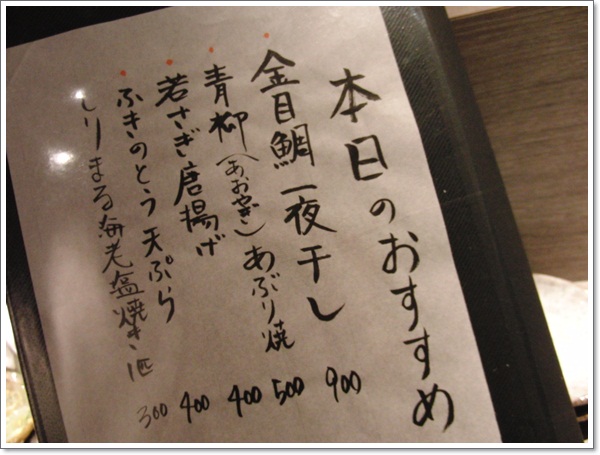 本日のおすすめ
金目鯛一夜干し 900
青柳(あおやぎ)あぶり焼 500
若さぎ唐揚げ 400
ふきのとう天ぷら 400
しりまる海老塩焼き一匹 300